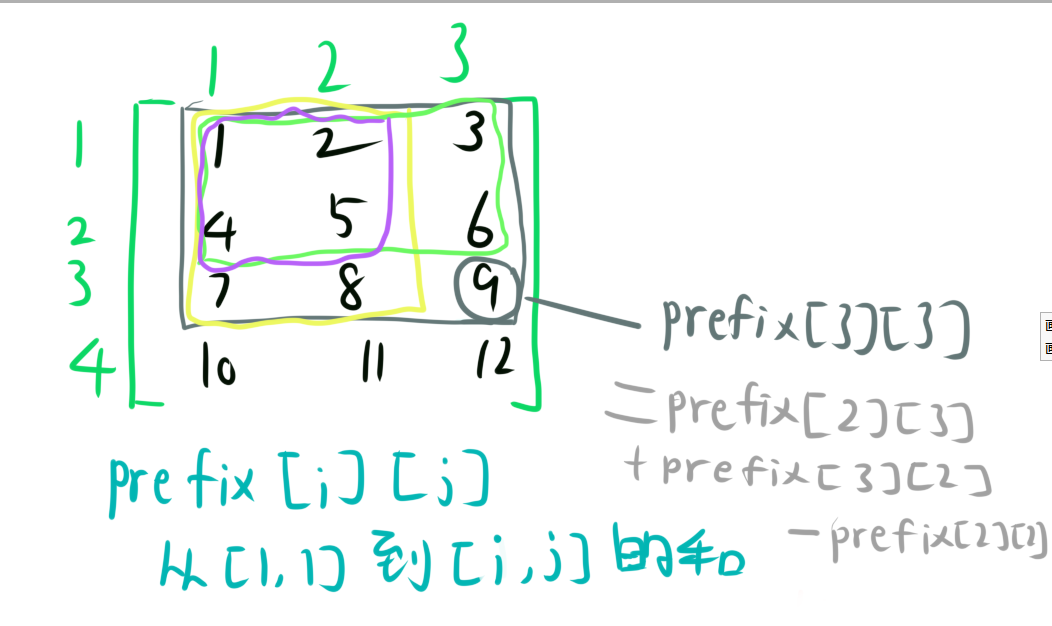 1 2 3
1 1 2 3
2 4 5 6
3 7 8 9
4 10 11 12
prefix[3][3]
=prefix[2][3]
+prefix[3][2]
-prefix[2][2]
prefix[i][j]
从[1,1]到[i,j]的和